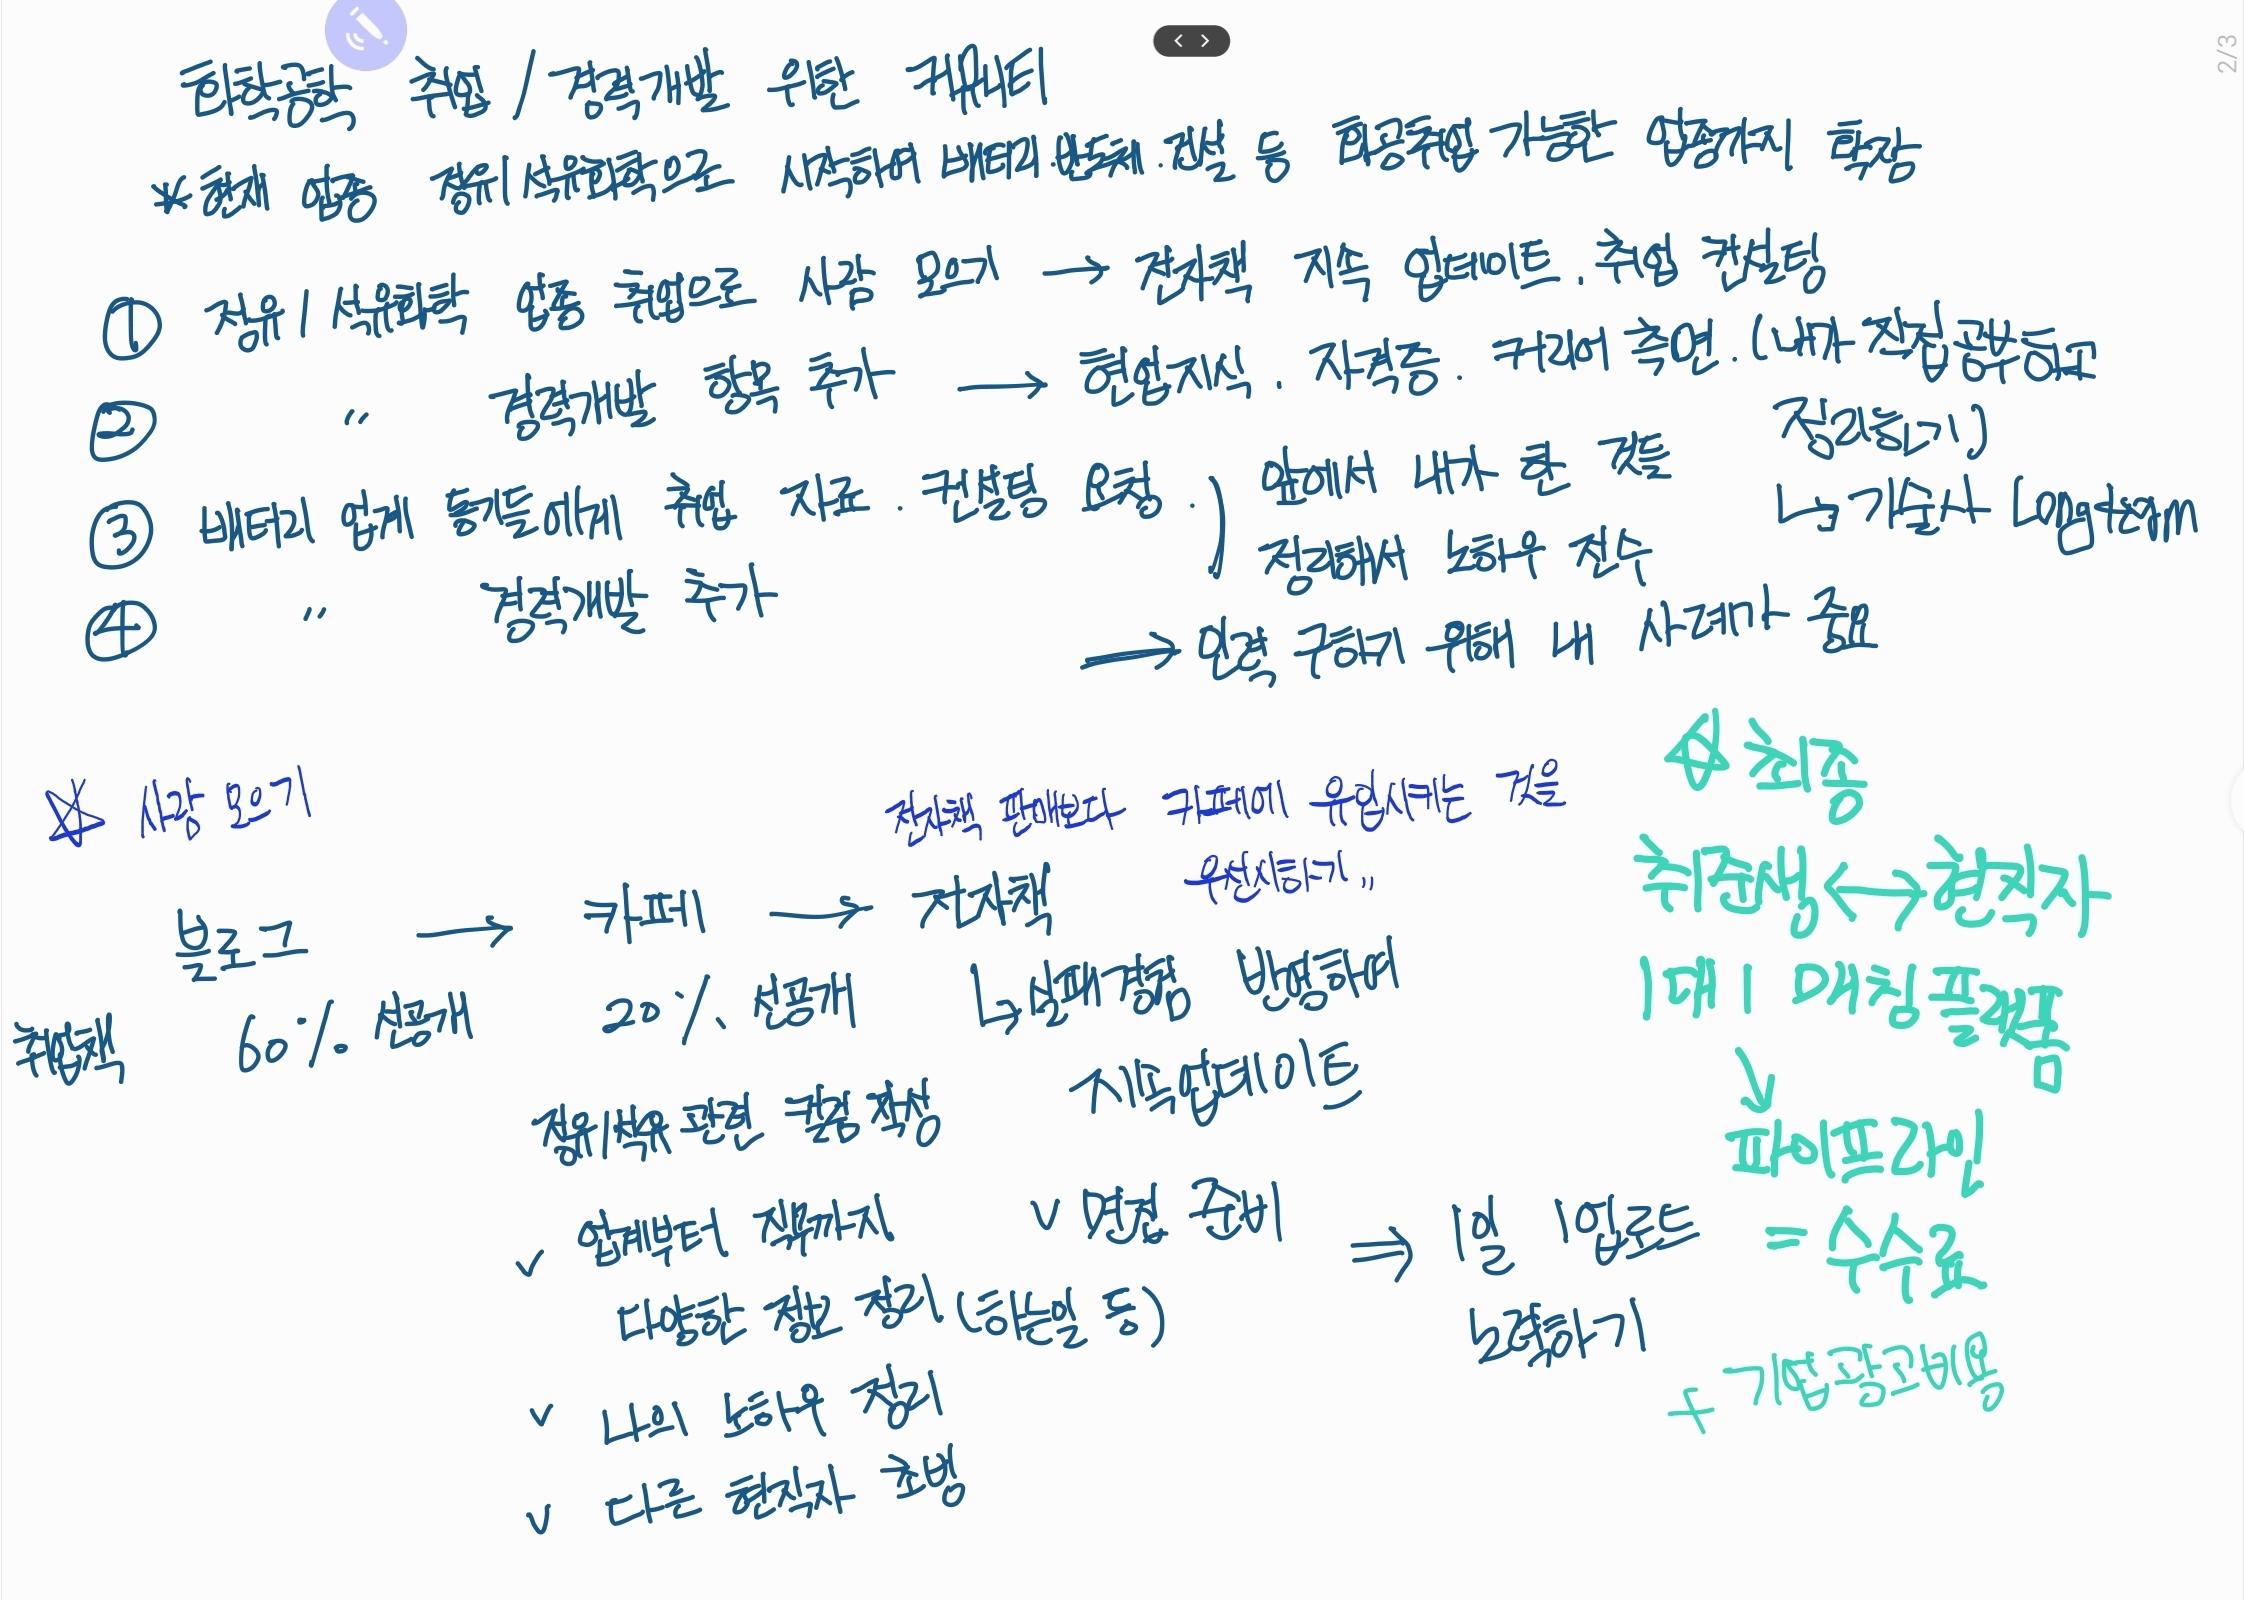 2/3
화학공학 취업 / 경력개발 위한 커뮤니티
* 현재 업종 정유/석유화학으로 시작하여 배터리.반도체.건설 등 화공취업 가능한 업종까지 확장
① 정유/석유화학 업종 취업으로 사람 모으기 → 전자책 지속 업데이트. 취업 컨설팅
② 〃 경력개발 항목 추가 → 현업지식. 자격증. 커리어 측면. (내가 직접 공부하고
정리하기)
↳ 기술사 Long term
③ 배터리 업계 동기들에게 취업 자료. 컨설팅 요청. ) 앞에서 내가 한 것들
정리해서 노하우 전수
④ 〃 경력개발 추가
→ 인력 구하기 위해 내 사례가 중요
☆ 사람 모으기
전자책 판매보다 카페에 유입시키는 것을
우선시하기..
블로그 → 카페 → 전자책
취업책 60%. 선공개 20%. 선공개 ↳ 실패경험 반영하여
지속업데이트
정유/석유 관련 컬럼 작성
v 업계부터 직무까지
다양한 정보 정리 (하는일 등)
v 면접 준비
v 나의 노하우 정리
v 다른 현직자 초빙
⇒ 1일 1업로드
노력하기
☆ 최종
취준생 ↔ 현직자
1대1 매칭플랫폼
↓
파이프라인
= 수수료
+ 기업광고비용